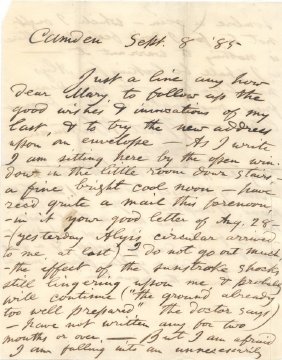 Camden Sept. 8 '85
Just a line any how
dear Mary, to follow up the
good wishes & invocations of my
last, & to try the new address
upon an envelope – As I write
I am sitting here by the open win-
dow in the little room down stairs –
a fine bright cool noon – have
read quite a mail this forenoon
– in it your good letter of Aug. 28 –
(yesterday Alys's circular arrived
to me, at last) I do not go out much
– the effect of the sunstroke shocks
still lingering upon me & probably
will continue ("the ground already
too well prepared" the doctor says)
– have not written any for two
months or over. – (But I am afraid
I am falling into an unnecessarily